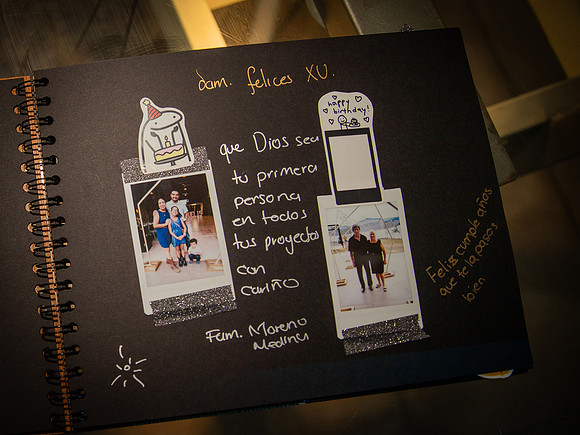 dam. felices XV.
happy
birthday!
que Dios sea
tu primera
persona
en todos
tus proyectos
con
cariño
Fam. Moreno
Medina
Feliz cumple años
que te la pases
bien